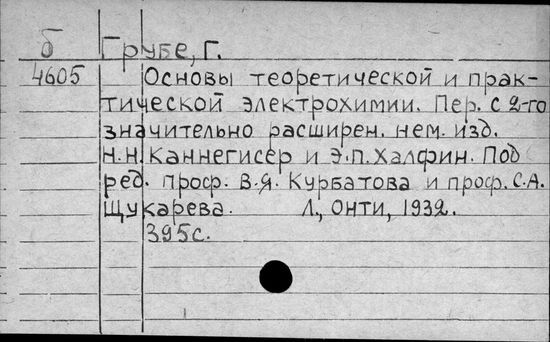 б Грубе, Г.
4605 Основы теоретической и прак-
тической электрохимии. Пер. с 2-го
значительно расширен. нем. изд.
Н.Н. Каннегисер и Э.П. Халфин. Под
ред. проф. В.Я. Курбатова и проф. С.А.
Щукарева. Л., ОНТИ, 1932.
395с.